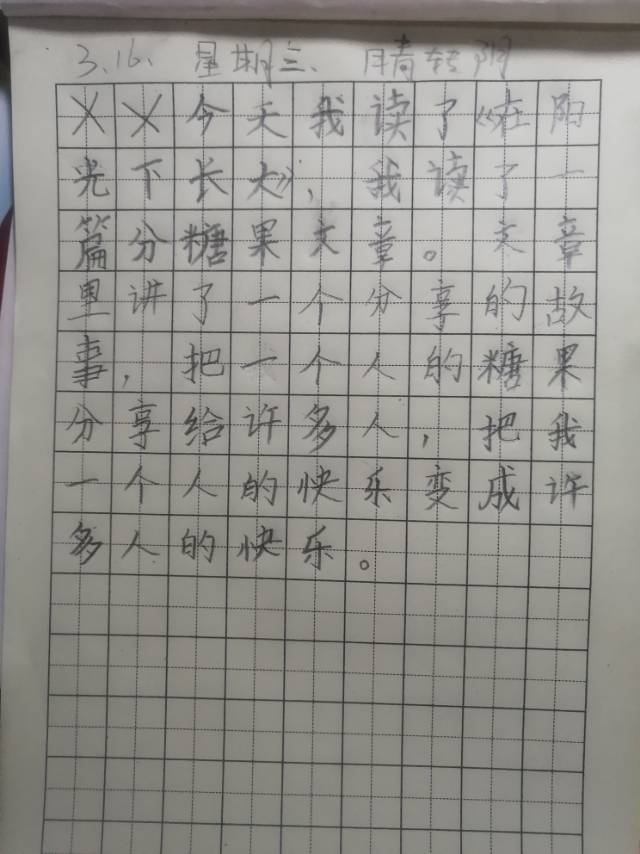 3.16. 星期三、 晴转阴
××今天我读了《在阳
光下长大》，我读了一
篇分糖果文章。文章
里讲了一个分享的故
事，把一个人的糖果
分享给许多人，把我
一个人的快乐变成许
多人的快乐。